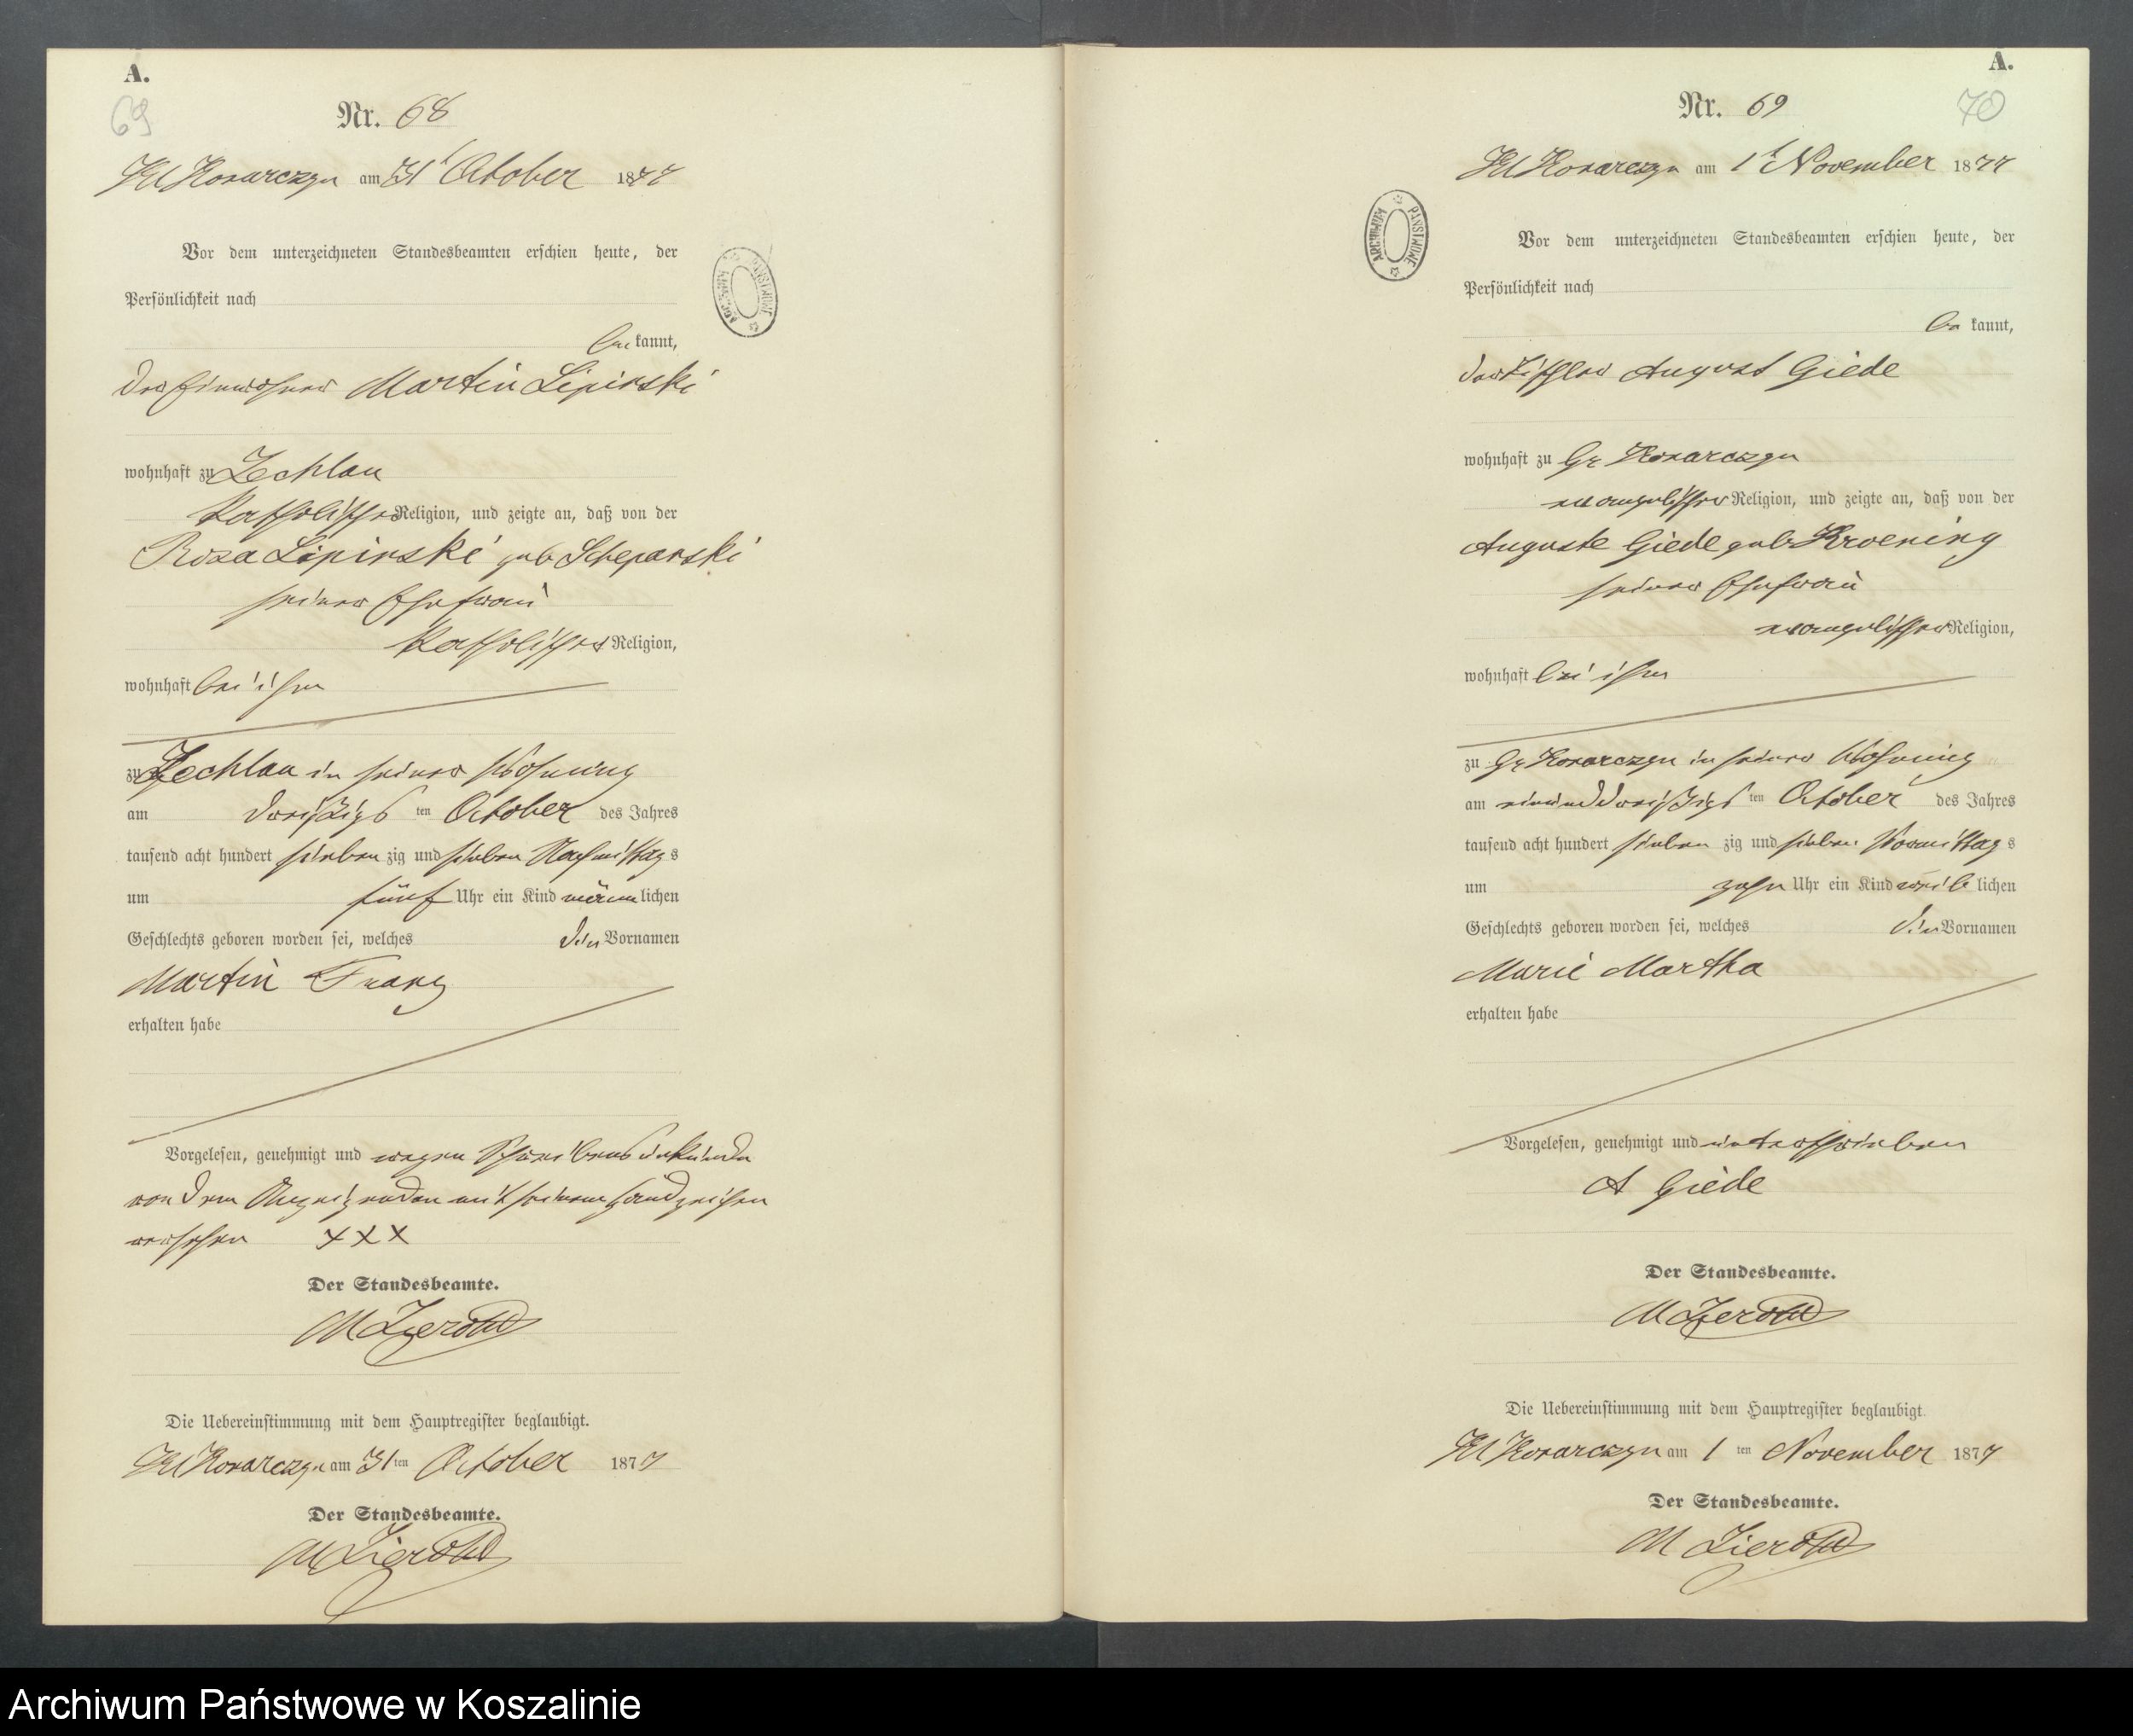 A.
69
Nr. 68
Kl Konarczyn am 31t October 1877
Vor dem unterzeichneten Standesbeamten erschien heute, der
Persönlichkeit nach
be kannt,
der Einwohner Martin Lipinski
wohnhaft zu Zechlau
katholischer Religion, und zeigte an, daß von der
Rosa Lipinski geb
seiner Ehefrau
katholischer Religion,
wohnhaft bei ihm
zu Zechlau in seiner Wohnung
am dreißigs ten October des Jahres
tausend acht hundert sieben zig und sieben Nachmittag s
um fünf Uhr ein Kind männ lichen
Geschlechts geboren worden sei, welches die Vornamen
Martin Franz
erhalten habe
Vorgelesen, genehmigt und wegen Schreibensunkunde
von dem Anzeigenden mit seinem Handzeichen
versehen XXX
Der Standesbeamte.
M Zierold
Die Uebereinstimmung mit dem Hauptregister beglaubigt.
Kl Konarczyn am 31 ten October 1877
Der Standesbeamte.
M Zierold
ARCHIWUM PAŃSTWOWE
A.
70
Nr. 69
Kl Konarczyn am 1t November 1877
ARCHIWUM PAŃSTWOWE
Vor dem unterzeichneten Standesbeamten erschien heute, der
Persönlichkeit nach
be kannt,
der Tischler August Giede
wohnhaft zu Gr Konarczyn
evangelischer Religion, und zeigte an, daß von der
Auguste Giede geb Kroening
seiner Ehefrau
evangelischer Religion,
wohnhaft bei ihm
zu Gr Konarczyn in seiner Wohnung
am einunddreißigs ten October des Jahres
tausend acht hundert sieben zig und sieben Vormittag s
um zehn Uhr ein Kind weib lichen
Geschlechts geboren worden sei, welches die Vornamen
Marie Martha
erhalten habe
Vorgelesen, genehmigt und unterschrieben
A Giede
Der Standesbeamte.
M Zierold
Die Uebereinstimmung mit dem Hauptregister beglaubigt.
Kl Konarczyn am 1 ten November 1877
Der Standesbeamte.
M Zierold
Archiwum Państwowe w Koszalinie